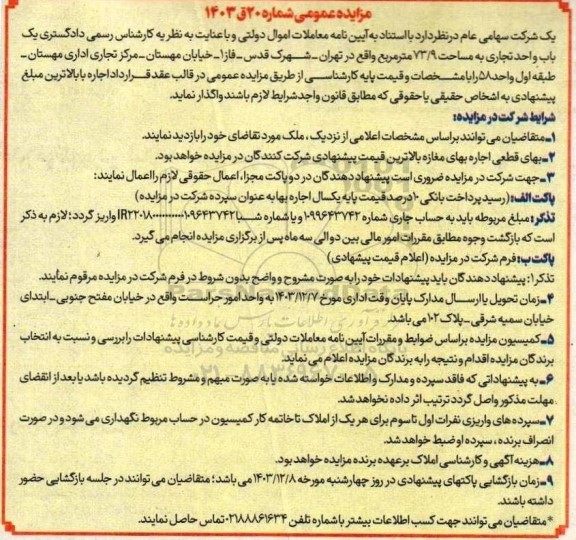 مزایده عمومی شماره ۲۰ق۱۴۰۳
یک شرکت سهامی عام در نظر دارد با استناد به آیین نامه معاملات اموال دولتی و با عنایت به نظریه کارشناس رسمی دادگستری یک
باب واحد تجاری به مساحت ۷۳/۹ مترمربع واقع در تهران ـ شهرک قدس ـ فاز۱ـ خیابان مهستان ـ مرکز تجاری اداری مهستان ـ
طبقه اول واحد۵۸ را با مشخصات و قیمت پایه کارشناسی از طریق مزایده عمومی در قالب عقد قرارداد اجاره با بالاترین مبلغ
پیشنهادی به اشخاص حقیقی یا حقوقی که مطابق قانون واجد شرایط لازم باشند واگذار نماید.
شرایط شرکت در مزایده:
۱ـ متقاضیان می توانند بر اساس مشخصات اعلامی از نزدیک، ملک مورد تقاضای خود را بازدید نمایند.
۲ـ بهای قطعی اجاره بهای مغازه بالاترین قیمت پیشنهادی شرکت کنندگان در مزایده خواهد بود.
۳ـ جهت شرکت در مزایده ضروری است پیشنهاد دهندگان در دو پاکت مجزا، اعمال حقوقی لازم را اعمال نمایند:
پاکت الف: (رسید پرداخت بانکی ۱۰درصد قیمت پایه یکسال اجاره بها به عنوان سپرده شرکت در مزایده)
تذکر: مبلغ مربوطه باید به حساب جاری شماره ۰۱۰۹۶۴۳۷۴۲ و یا شماره شبا واریز گردد؛ لازم به ذکر
است که بازگشت وجوه مطابق مقررات امور مالی بین دو الی سه ماه پس از برگزاری مزایده انجام می گیرد.
پاکت ب: فرم شرکت در مزایده (اعلام قیمت پیشهادی)
تذکر۱: پیشنهاد دهندگان باید پیشنهادات خود را به صورت مشروح و واضح بدون شروط در فرم شرکت در مزایده مرقوم نمایند.
۴ـ زمان تحویل یا ارسال مدارک پایان وقت اداری مورخ ۱۴۰۳/۱۲/۷ به واحد امور حراست واقع در خیابان مفتح جنوبی ـ ابتدای
خیابان سمیه شرقی ـ پلاک ۱۰۲ می باشد.
۵ـ کمیسیون مزایده بر اساس ضوابط و مقررات آیین نامه معاملات دولتی و قیمت کارشناسی پیشنهادات را بررسی و نسبت به انتخاب
برندگان مزایده اقدام و نتیجه را به برندگان مزایده اعلام می نماید.
۶ـ به پیشنهاداتی که فاقد سپرده و مدارک و اطلاعات خواسته شده یا به صورت مبهم و مشروط تنظیم گردیده باشد یا بعد از انقضای
مهلت مذکور واصل گردد ترتیب اثر داده نخواهد شد.
۷ـ سپرده های واریزی نفرات اول تا سوم برای هر یک از املاک تا خاتمه کار کمیسیون در حساب مربوط نگهداری می شود و در صورت
انصراف برنده، سپرده او ضبط خواهد شد.
۸ـ هزینه آگهی و کارشناسی املاک بر عهده برنده مزایده خواهد بود.
۹ـ زمان بازگشایی پاکتهای پیشنهادی در روز چهارشنبه مورخه ۱۴۰۳/۱۲/۸ می باشد؛ متقاضیان می توانند در جلسه بازگشایی حضور
داشته باشند.
*متقاضیان می توانند جهت کسب اطلاعات بیشتر با شماره تلفن ۰۲۱۸۸۸۶۱۶۳۴ تماس حاصل نمایند.